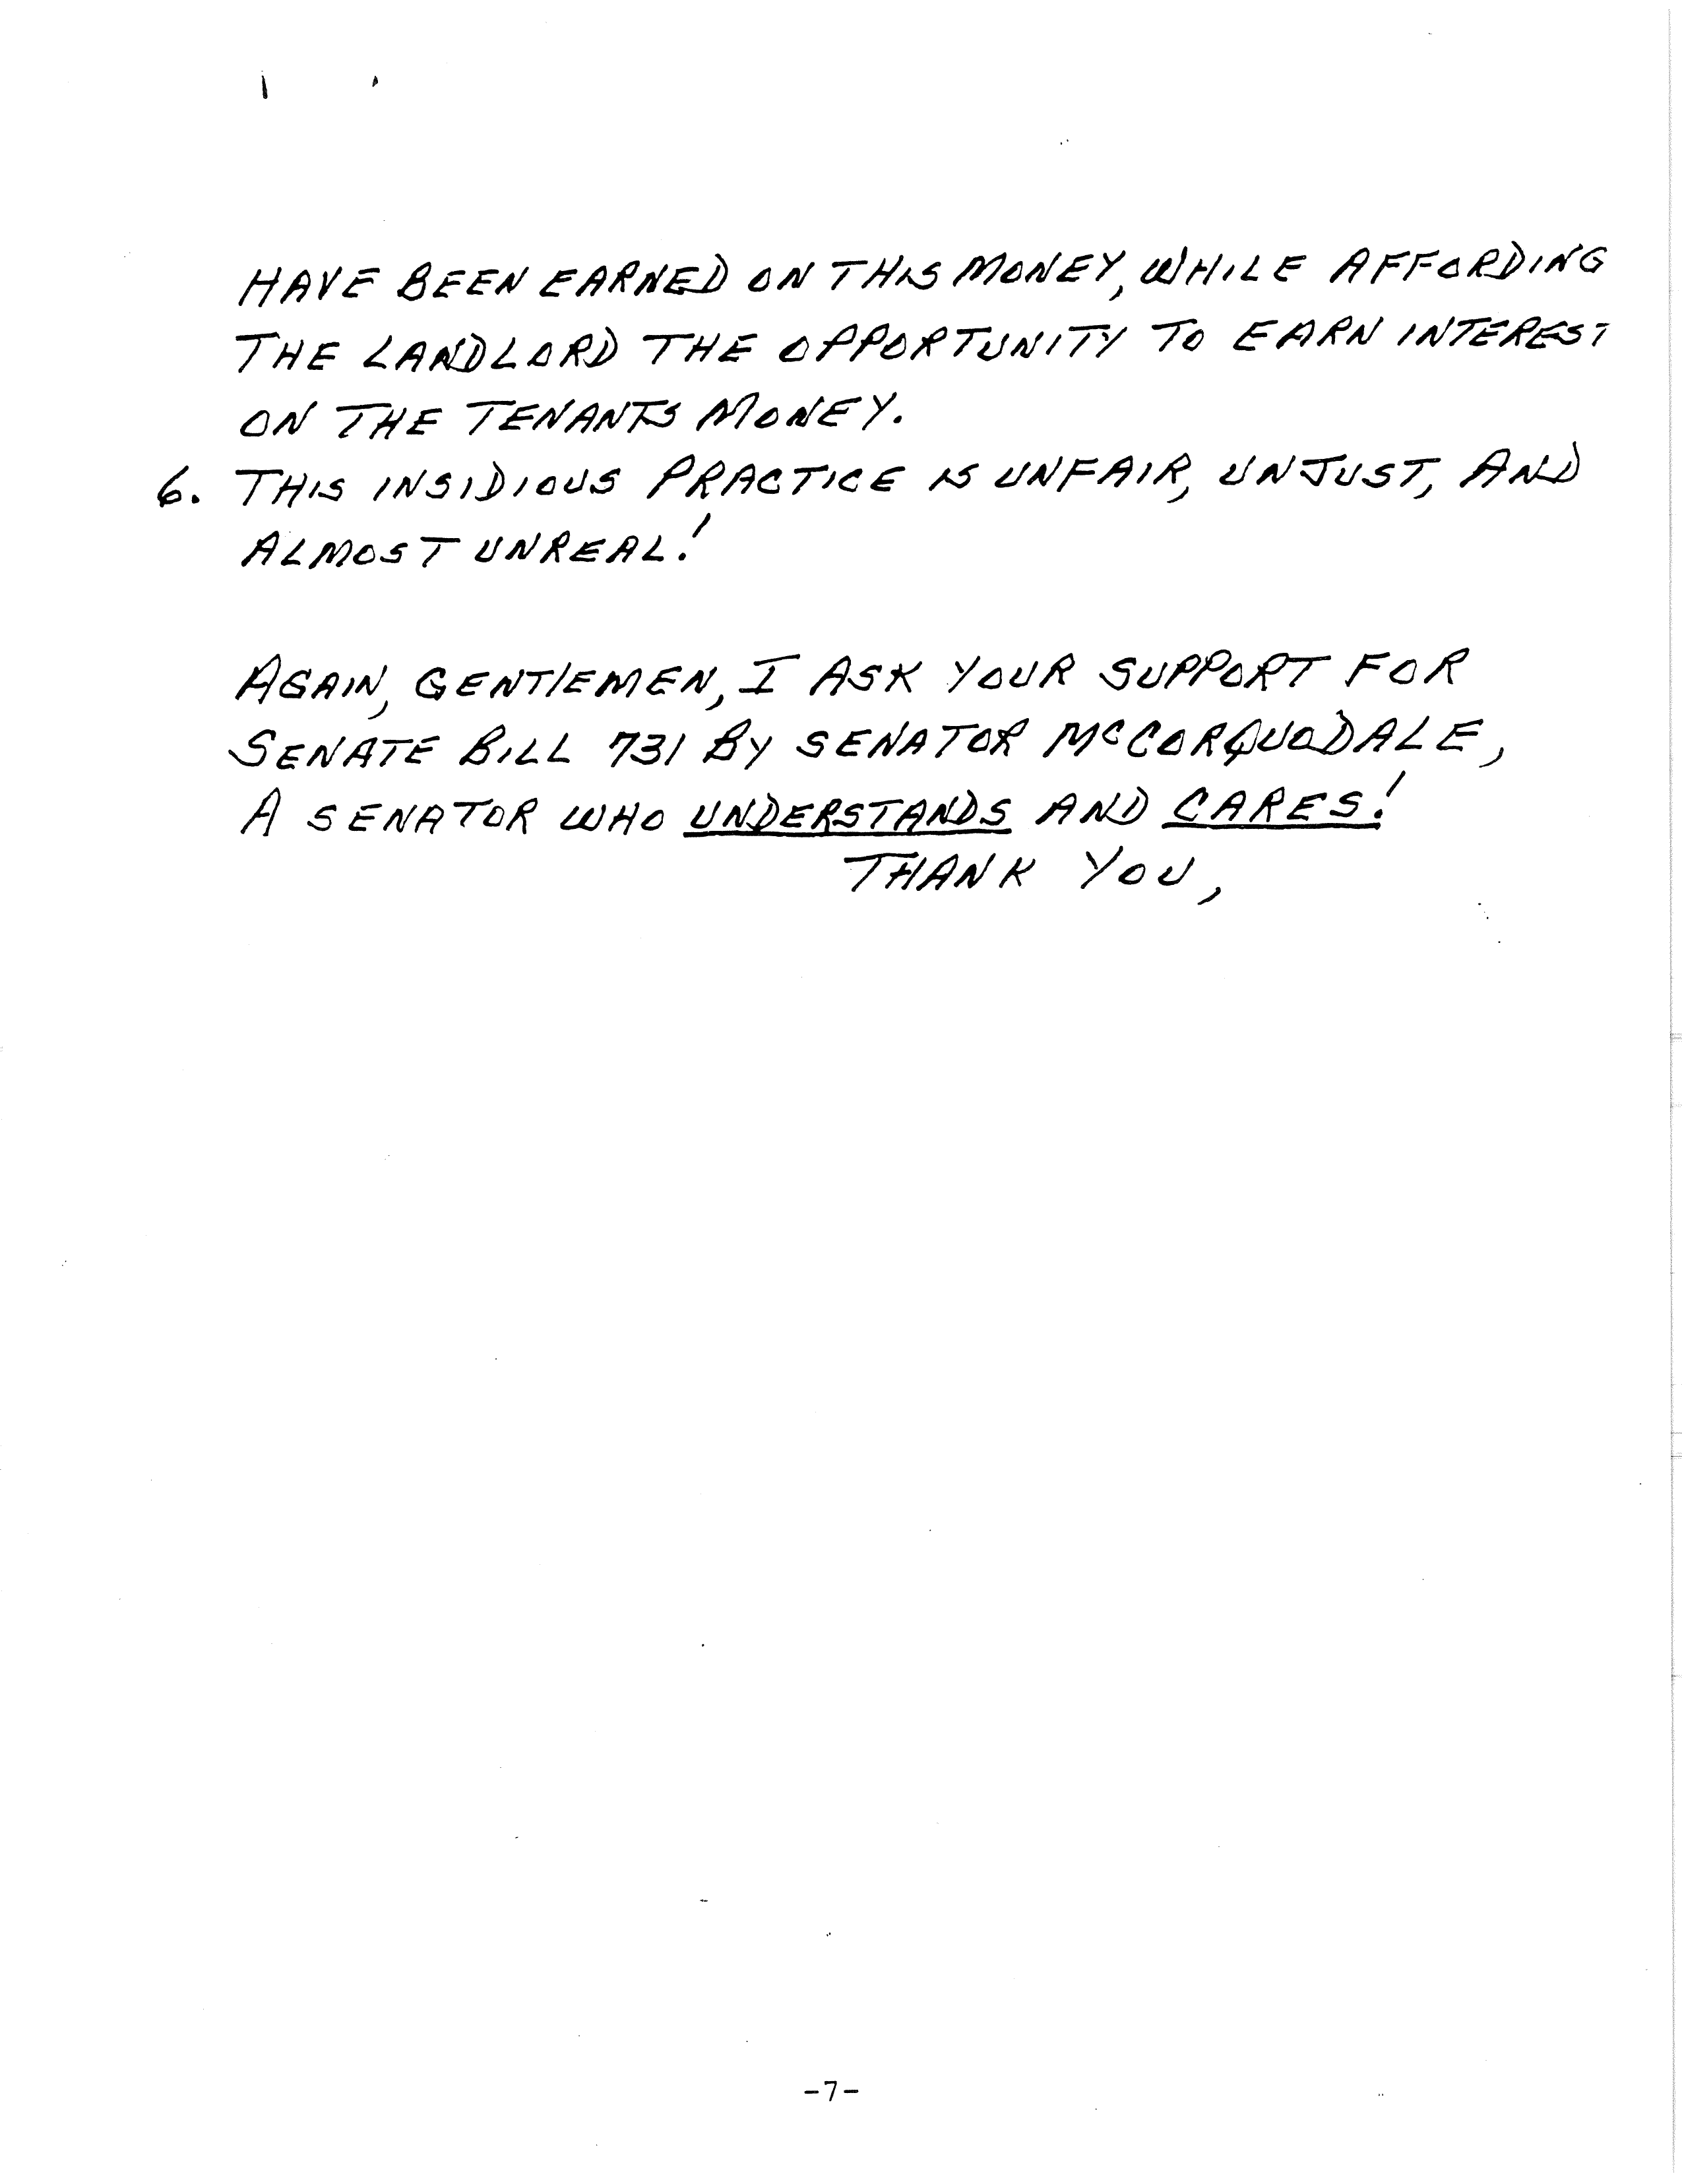 HAVE BEEN EARNED ON THIS MONEY, WHILE AFFORDING
THE LANDLORD THE OPPORTUNITY TO EARN INTEREST
ON THE TENANTS MONEY.
6. THIS INSIDIOUS PRACTICE IS UNFAIR, UNJUST, AND
ALMOST UNREAL!
AGAIN, GENTLEMEN, I ASK YOUR SUPPORT FOR
SENATE BILL 731 BY SENATOR MCCORQUODALE,
A SENATOR WHO UNDERSTANDS AND CARES!
THANK YOU,
-7-